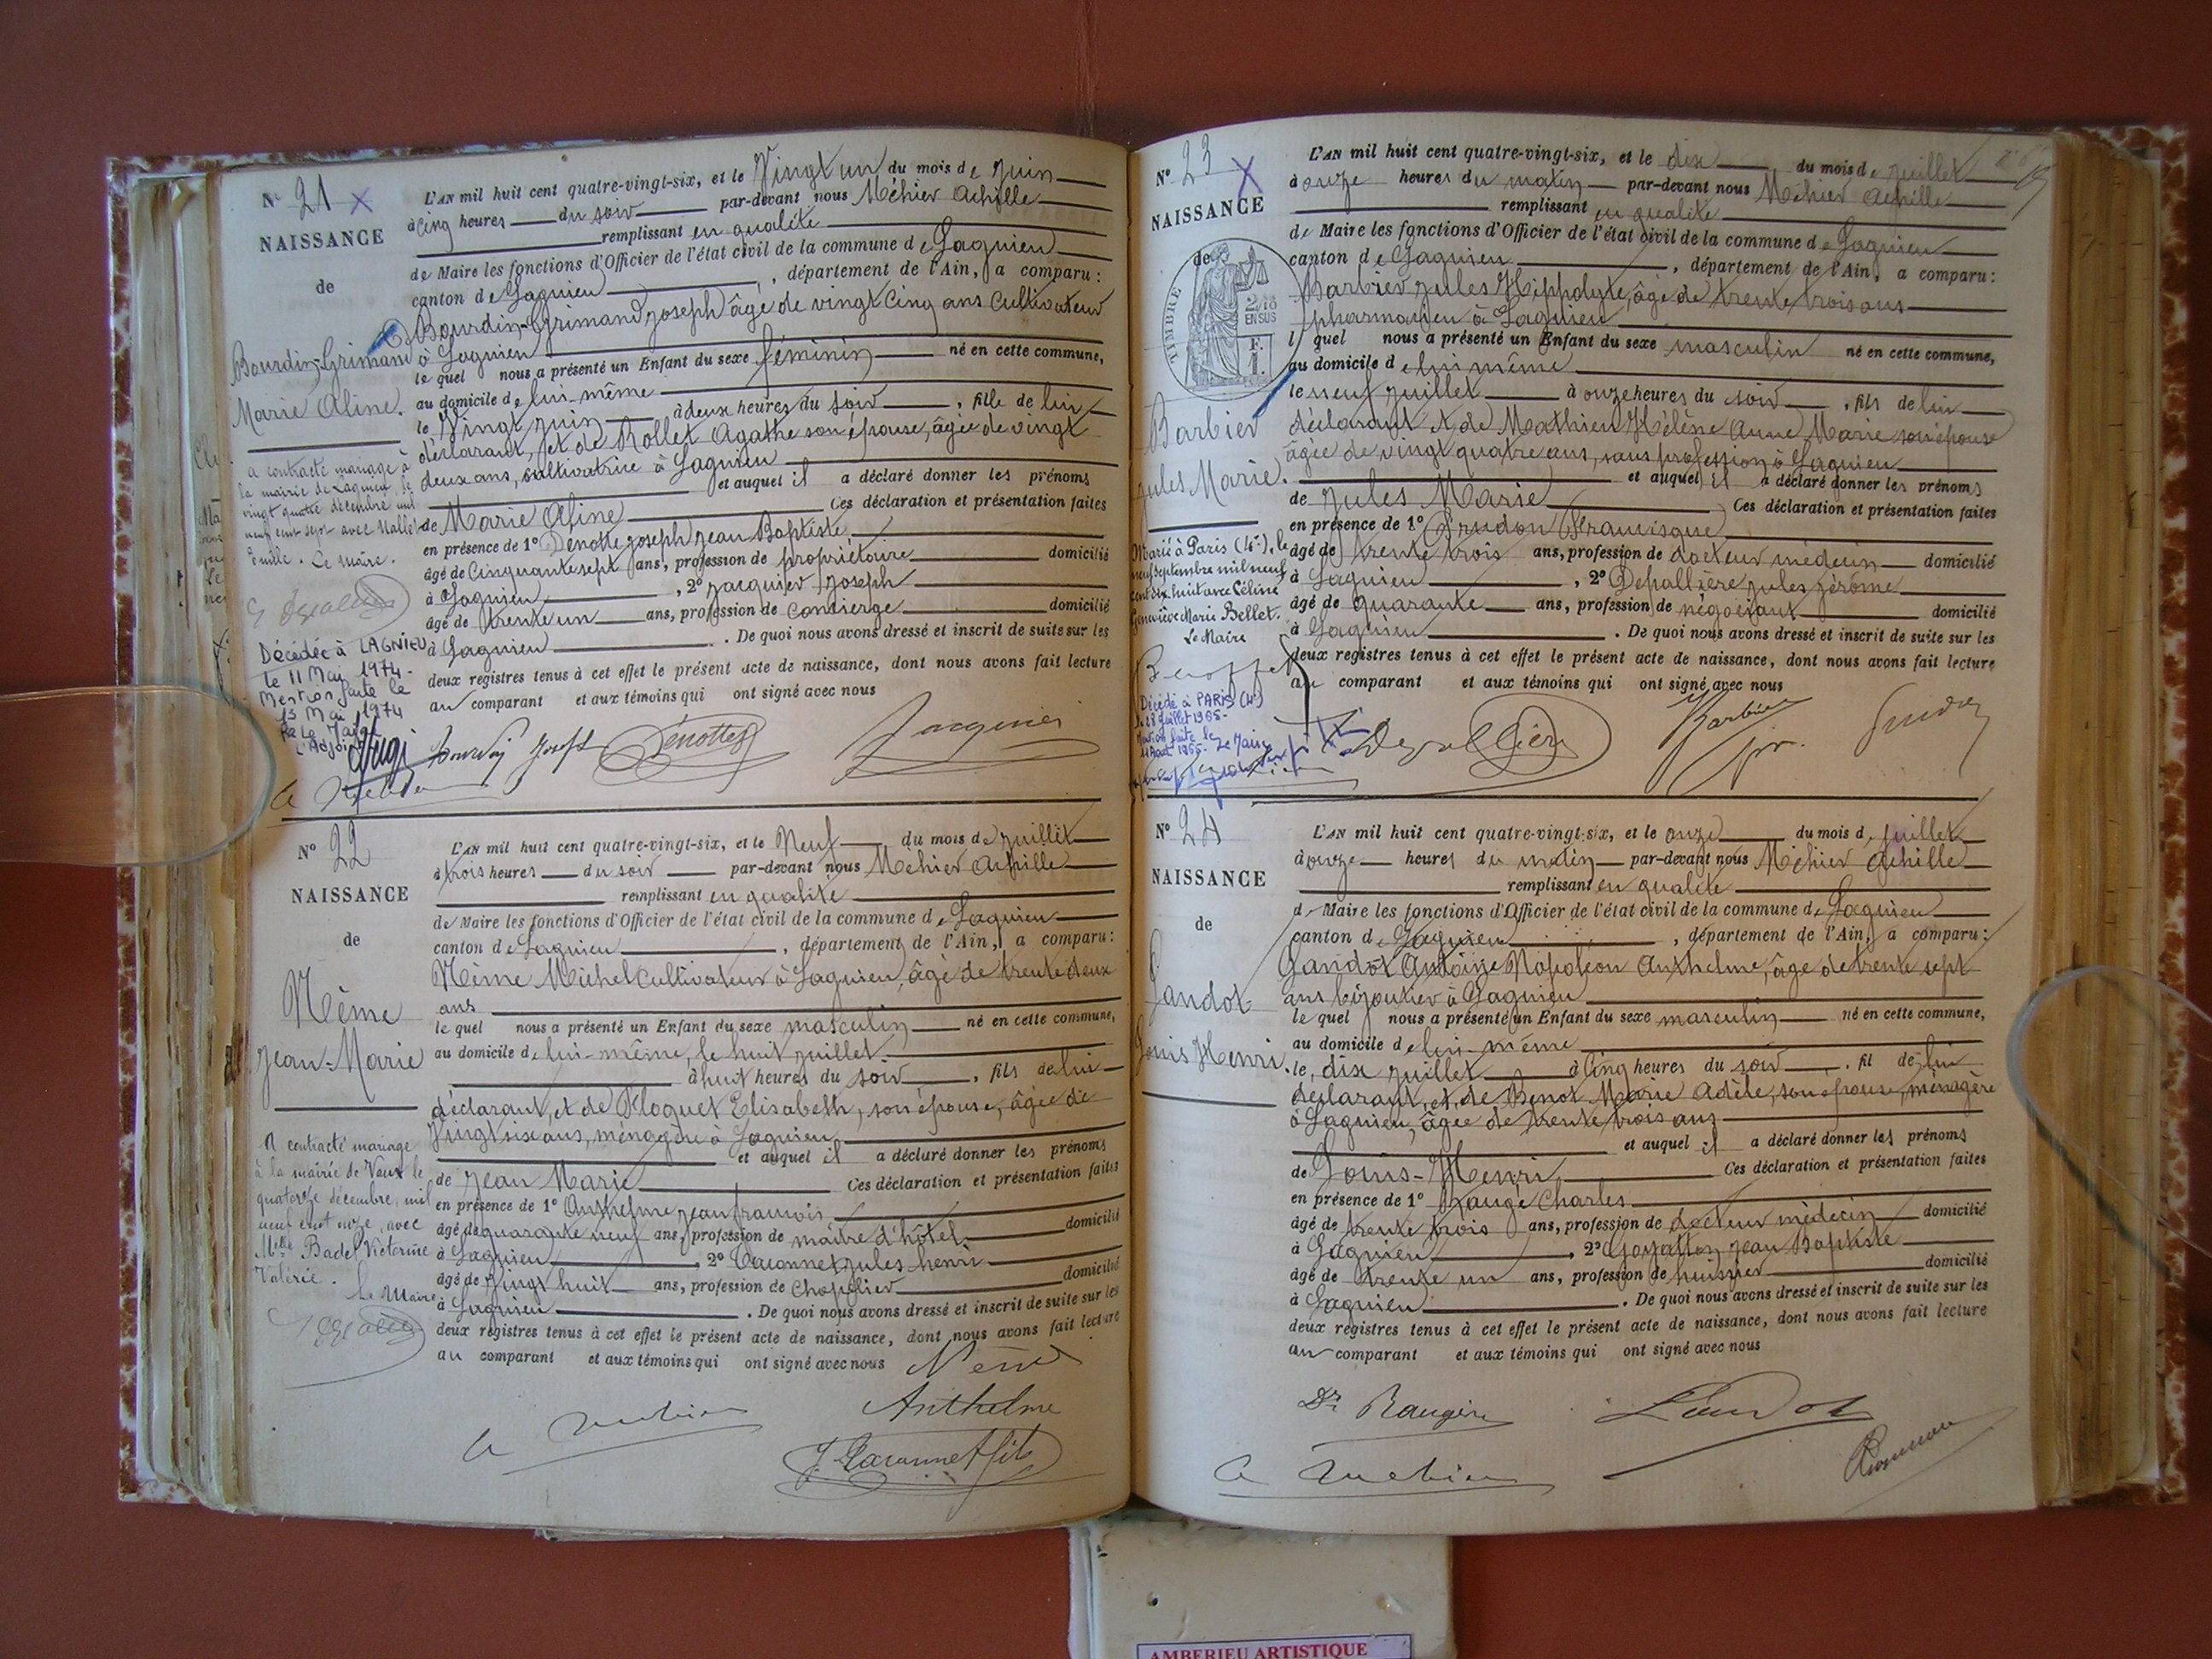 N° 21
NAISSANCE
de
Bourdin-Grimaud
Marie Aline.
a contracté mariage à
la mairie de Lagnieu, le
vingt quatre décembre mil
neuf cent sept avec
Emile. Le Maire.
Décédée à LAGNIEU
le 11 Mai 1974-
Mention faite le
13 Mai 1974
L'Adjoint
L'AN mil huit cent quatre-vingt-six, et le Vingt un du mois de juin
à cinq heures du soir par-devant nous Méhier Achille
remplissant en qualité
de Maire les fonctions d'Officier de l'état civil de la commune de Lagnieu
canton de Lagnieu, département de l'Ain, a comparu:
Bourdin-Grimaud Joseph âgé de vingt cinq ans Cultivateur
à Lagnieu
le quel nous a présenté un Enfant du sexe féminin né en cette commune,
au domicile de lui-même
le Vingt juin à deux heures du soir, fille de lui
déclarant, et de Rollet Agathe son épouse, âgée de vingt
deux ans, cultivatrice à Lagnieu
et auquel il a déclaré donner les prénoms
de Marie Aline Ces déclaration et présentation faites
en présence de 1° Dénotte Joseph Jean Baptiste,
âgé de Cinquante sept ans, profession de propriétaire domicilié
à Lagnieu, 2° Jacquier Joseph
âgé de trente un ans, profession de concierge domicilié
à Lagnieu. De quoi nous avons dressé et inscrit de suite sur les
deux registres tenus à cet effet le présent acte de naissance, dont nous avons fait lecture
au comparant et aux témoins qui ont signé avec nous
Bourdin Joseph Dénotte Jacquier
N° 22
NAISSANCE
de
Même
Jean-Marie
A contracté mariage
à la mairie de Vaux le
quatorze décembre, mil
neuf cent onze, avec
Mlle Badel Victorine
Valérie.
Le Maire
L'AN mil huit cent quatre-vingt-six, et le Neuf du mois de juillet
à trois heures du soir par-devant nous Méhier Achille
remplissant en qualité
de Maire les fonctions d'Officier de l'état civil de la commune de Lagnieu
canton de Lagnieu, département de l'Ain, a comparu:
Même Michel Cultivateur à Lagnieu, âgé de trente deux
ans
le quel nous a présenté un Enfant du sexe masculin né en cette commune,
au domicile de lui-même, le huit juillet
à huit heures du soir, fils de lui
déclarant, et de Floquet Elisabeth, son épouse, âgée de
Vingt six ans, ménagère à Lagnieu
et auquel il a déclaré donner les prénoms
de Jean Marie Ces déclaration et présentation faites
en présence de 1° Anthelme Jean François
âgé de quarante neuf ans, profession de maître d'hôtel domicilié
à Lagnieu, 2° Caronnet Jules Henri
âgé de vingt huit ans, profession de Chapelier domicilié
à Lagnieu. De quoi nous avons dressé et inscrit de suite sur les
deux registres tenus à cet effet le présent acte de naissance, dont nous avons fait lecture
au comparant et aux témoins qui ont signé avec nous
Anthelme
N° 23
NAISSANCE
de
TIMBRE
EN SUS
F.
1.
Barbier
Jules Marie.
Marié à Paris (4e), le
neuf septembre mil neuf
cent dix huit avec Céline
Geneviève Marie Bellet.
Le Maire
Décédé à PARIS (4e)
L'AN mil huit cent quatre-vingt-six, et le dix du mois de juillet
à onze heures du matin par-devant nous Méhier Achille
remplissant en qualité
de Maire les fonctions d'Officier de l'état civil de la commune de Lagnieu
canton de Lagnieu, département de l'Ain, a comparu:
Barbier Jules Hippolyte, âgé de trente trois ans
pharmacien à Lagnieu
l quel nous a présenté un Enfant du sexe masculin né en cette commune,
au domicile de lui même
le neuf juillet à onze heures du soir, fils de lui
déclarant et de Mathieu Hélène Anne Marie son épouse
âgée de vingt quatre ans, sans profession à Lagnieu
et auquel il a déclaré donner les prénoms
de Jules Marie Ces déclaration et présentation faites
en présence de 1° Prudon Francisque
âgé de trente trois ans, profession de docteur médecin domicilié
à Lagnieu, 2° Depallière Jules Jérôme
âgé de quarante ans, profession de négociant domicilié
à Lagnieu. De quoi nous avons dressé et inscrit de suite sur les
deux registres tenus à cet effet le présent acte de naissance, dont nous avons fait lecture
au comparant et aux témoins qui ont signé avec nous
Barbier
N° 24
NAISSANCE
de
Landot
Louis Henri.
L'AN mil huit cent quatre-vingt-six, et le onze du mois de juillet
à onze heures du matin par-devant nous Méhier Achille
remplissant en qualité
de Maire les fonctions d'Officier de l'état civil de la commune de Lagnieu
canton de Lagnieu, département de l'Ain, a comparu:
Landot Antoine Napoléon Anthelme, âgé de trente sept
ans bijoutier à Lagnieu
le quel nous a présenté un Enfant du sexe masculin né en cette commune,
au domicile de lui-même
le, dix juillet à Cinq heures du soir, fil de lui
déclarant, et, de Benot Marie Adèle, son épouse, ménagère
à Lagnieu, âgée de trente trois ans
et auquel il a déclaré donner les prénoms
de Louis-Henri Ces déclaration et présentation faites
en présence de 1° Raugé Charles
âgé de trente trois ans, profession de docteur médecin domicilié
à Lagnieu, 2° Goyatton Jean Baptiste
âgé de trente un ans, profession de huissier domicilié
à Lagnieu. De quoi nous avons dressé et inscrit de suite sur les
deux registres tenus à cet effet le présent acte de naissance, dont nous avons fait lecture
au comparant et aux témoins qui ont signé avec nous
Landot
AMBERIEU ARTISTIQUE